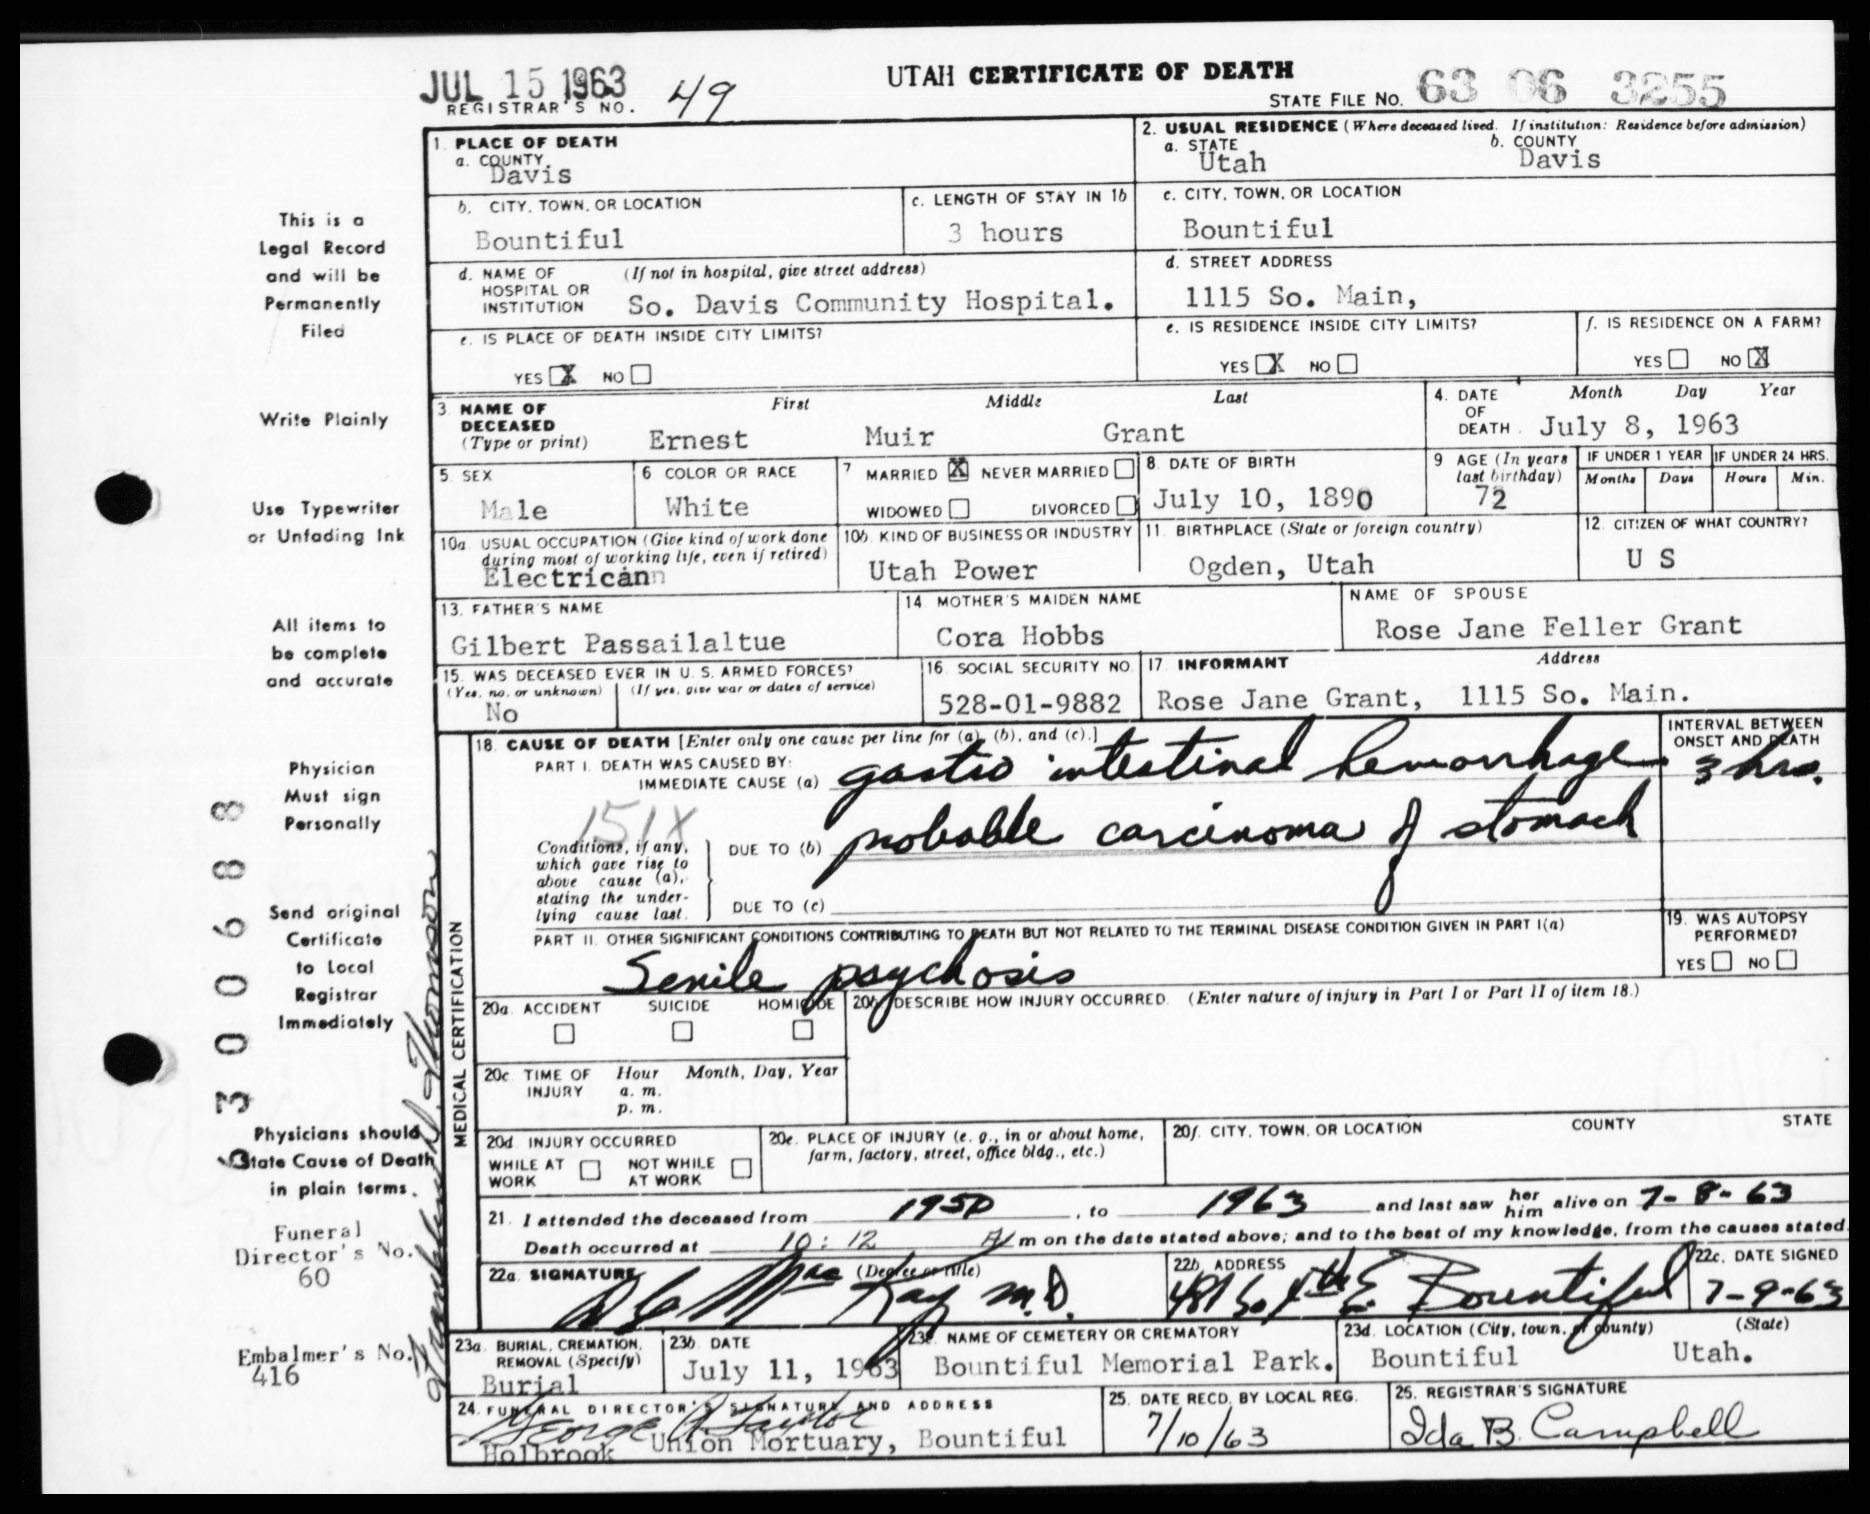 JUL 15 1963
REGISTRAR'S NO. 49
UTAH CERTIFICATE OF DEATH
STATE FILE NO. 63 06 3255
1. PLACE OF DEATH
a. COUNTY
Davis
2. USUAL RESIDENCE (Where deceased lived. If institution: Residence before admission)
a. STATE
Utah
b. COUNTY
Davis
b. CITY, TOWN, OR LOCATION
Bountiful
c. LENGTH OF STAY IN 1b
3 hours
c. CITY, TOWN, OR LOCATION
Bountiful
d. NAME OF HOSPITAL OR INSTITUTION
(If not in hospital, give street address)
So. Davis Community Hospital.
d. STREET ADDRESS
1115 So. Main,
e. IS PLACE OF DEATH INSIDE CITY LIMITS?
YES X NO
e. IS RESIDENCE INSIDE CITY LIMITS?
YES X NO
f. IS RESIDENCE ON A FARM?
YES NO X
3. NAME OF DECEASED
(Type or print)
First Middle Last
Ernest Muir Grant
4. DATE OF DEATH
Month Day Year
July 8, 1963
5. SEX
Male
6 COLOR OR RACE
White
7 MARRIED X NEVER MARRIED
WIDOWED DIVORCED
8. DATE OF BIRTH
July 10, 1890
9 AGE (In years last birthday)
72
IF UNDER 1 YEAR
Months Days
IF UNDER 24 HRS.
Hours Min.
10a. USUAL OCCUPATION (Give kind of work done during most of working life, even if retired)
Electricann
10b. KIND OF BUSINESS OR INDUSTRY
Utah Power
11. BIRTHPLACE (State or foreign country)
Ogden, Utah
12. CITIZEN OF WHAT COUNTRY?
U S
13. FATHER'S NAME
Gilbert Passailaltue
14. MOTHER'S MAIDEN NAME
Cora Hobbs
NAME OF SPOUSE
Rose Jane Feller Grant
15. WAS DECEASED EVER IN U. S. ARMED FORCES?
(Yes, no, or unknown) (If yes, give war or dates of service)
No
16. SOCIAL SECURITY NO.
528-01-9882
17. INFORMANT Address
Rose Jane Grant, 1115 So. Main.
MEDICAL CERTIFICATION
18. CAUSE OF DEATH [Enter only one cause per line for (a), (b), and (c).]
INTERVAL BETWEEN ONSET AND DEATH
PART I. DEATH WAS CAUSED BY:
IMMEDIATE CAUSE (a) gastro intestinal hemorrhage
3 hrs.
151X
Conditions, if any, which gave rise to above cause (a), stating the underlying cause last.
DUE TO (b) probable carcinoma of stomach
DUE TO (c)
PART II. OTHER SIGNIFICANT CONDITIONS CONTRIBUTING TO DEATH BUT NOT RELATED TO THE TERMINAL DISEASE CONDITION GIVEN IN PART I(a)
Senile psychosis
19. WAS AUTOPSY PERFORMED?
YES NO
20a. ACCIDENT SUICIDE HOMICIDE
20b. DESCRIBE HOW INJURY OCCURRED. (Enter nature of injury in Part I or Part II of item 18.)
20c. TIME OF INJURY
Hour Month, Day, Year
a. m.
p. m.
20d INJURY OCCURRED
WHILE AT WORK NOT WHILE AT WORK
20e. PLACE OF INJURY (e. g., in or about home, farm, factory, street, office bldg., etc.)
20f. CITY, TOWN, OR LOCATION COUNTY STATE
21. I attended the deceased from 1950, to 1963 and last saw her him alive on 7-8-63
Death occurred at 10:12 A m on the date stated above; and to the best of my knowledge, from the causes stated.
22a. SIGNATURE (Degree or title)
D C MacKay M.D.
22b. ADDRESS
481 So 4th E Bountiful
22c. DATE SIGNED
7-9-63
23a. BURIAL, CREMATION, REMOVAL (Specify)
Burial
23b. DATE
July 11, 1963
23c. NAME OF CEMETERY OR CREMATORY
Bountiful Memorial Park.
23d. LOCATION (City, town, or county) (State)
Bountiful Utah.
24. FUNERAL DIRECTOR'S SIGNATURE AND ADDRESS
George R. Taylor
Holbrook Union Mortuary, Bountiful
25. DATE RECD. BY LOCAL REG.
7/10/63
25. REGISTRAR'S SIGNATURE
Ida B. Campbell
This is a
Legal Record
and will be
Permanently
Filed
Write Plainly
Use Typewriter
or Unfading Ink
All items to
be complete
and accurate
Physician
Must sign
Personally
Send original
Certificate
to Local
Registrar
Immediately
Physicians should
State Cause of Death
in plain terms.
Funeral
Director's No.
60
Embalmer's No.
416
Franklin D. Thomson
6300688